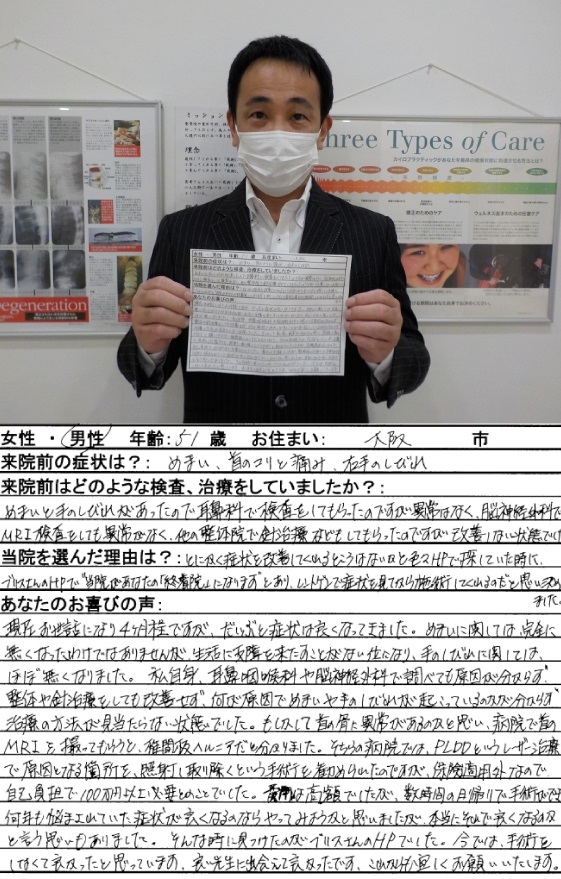 ミッション
理念
Three Types of Care
カイロプラクティックがあなたを最良の健康状態に到達させる方法とは?
矯正のためのケア
ウェルネス志向のための定期ケア
Degeneration
女性 ・ 男性 年齢: 51 歳 お住まい: 大阪 市
来院前の症状は?: めまい、首のコリと痛み、右手のしびれ
来院前はどのような検査、治療をしていましたか?:
めまいと手のしびれがあったので耳鼻科で検査をしてもらったのですが異常はなく、脳神経外科で
MRI検査をしても異常がなく、他の整体院で針治療などもしてもらったのですが改善しない状態でした
当院を選んだ理由は?: とにかく症状を改善してくれるところはないかと色々HPで探していた時に
ブリスさんのHPで"当院があなたの「終着院」になります"とあり、レントゲンで症状を見てから施術してくれるのだと思い決め
ました。
あなたのお喜びの声:
現在お世話になり4ヶ月程ですが、だいぶと症状は良くなってきました。めまいに関しては完全に
無くなったわけではありませんが生活に支障を来たすことがない位になり、手のしびれに関しては、
ほぼ無くなりました。私自身、耳鼻咽喉科や脳神経外科で調べても原因が分からず
整体や針治療をしても改善せず、何が原因でめまいや手のしびれが起こっているのかが分からず
治療の方法が見当たらない状態でした。もしかして首の骨に異常があるのかと思い、病院で首の
MRIを撮ってもらうと、椎間板ヘルニアだと分かりました。そちらの病院では、PLDDというレーザー治療
で原因となる箇所を、照射し取り除くという手術を勧められたのですが、保険適用外なので
自己負担で100万円以上必要とのことでした。費用は高額でしたが、数時間の日帰りで手術ができ
何年も悩まされていた症状が良くなるのならやってみようかと思いましたが、本当にそれで良くなるのか
と言う思いもありました。そんな時に見つけたのがブリスさんのHPでした。今では、手術を
しなくて良かったと思っています。良い先生に出会えて良かったです、これからも宜しくお願いいたします。